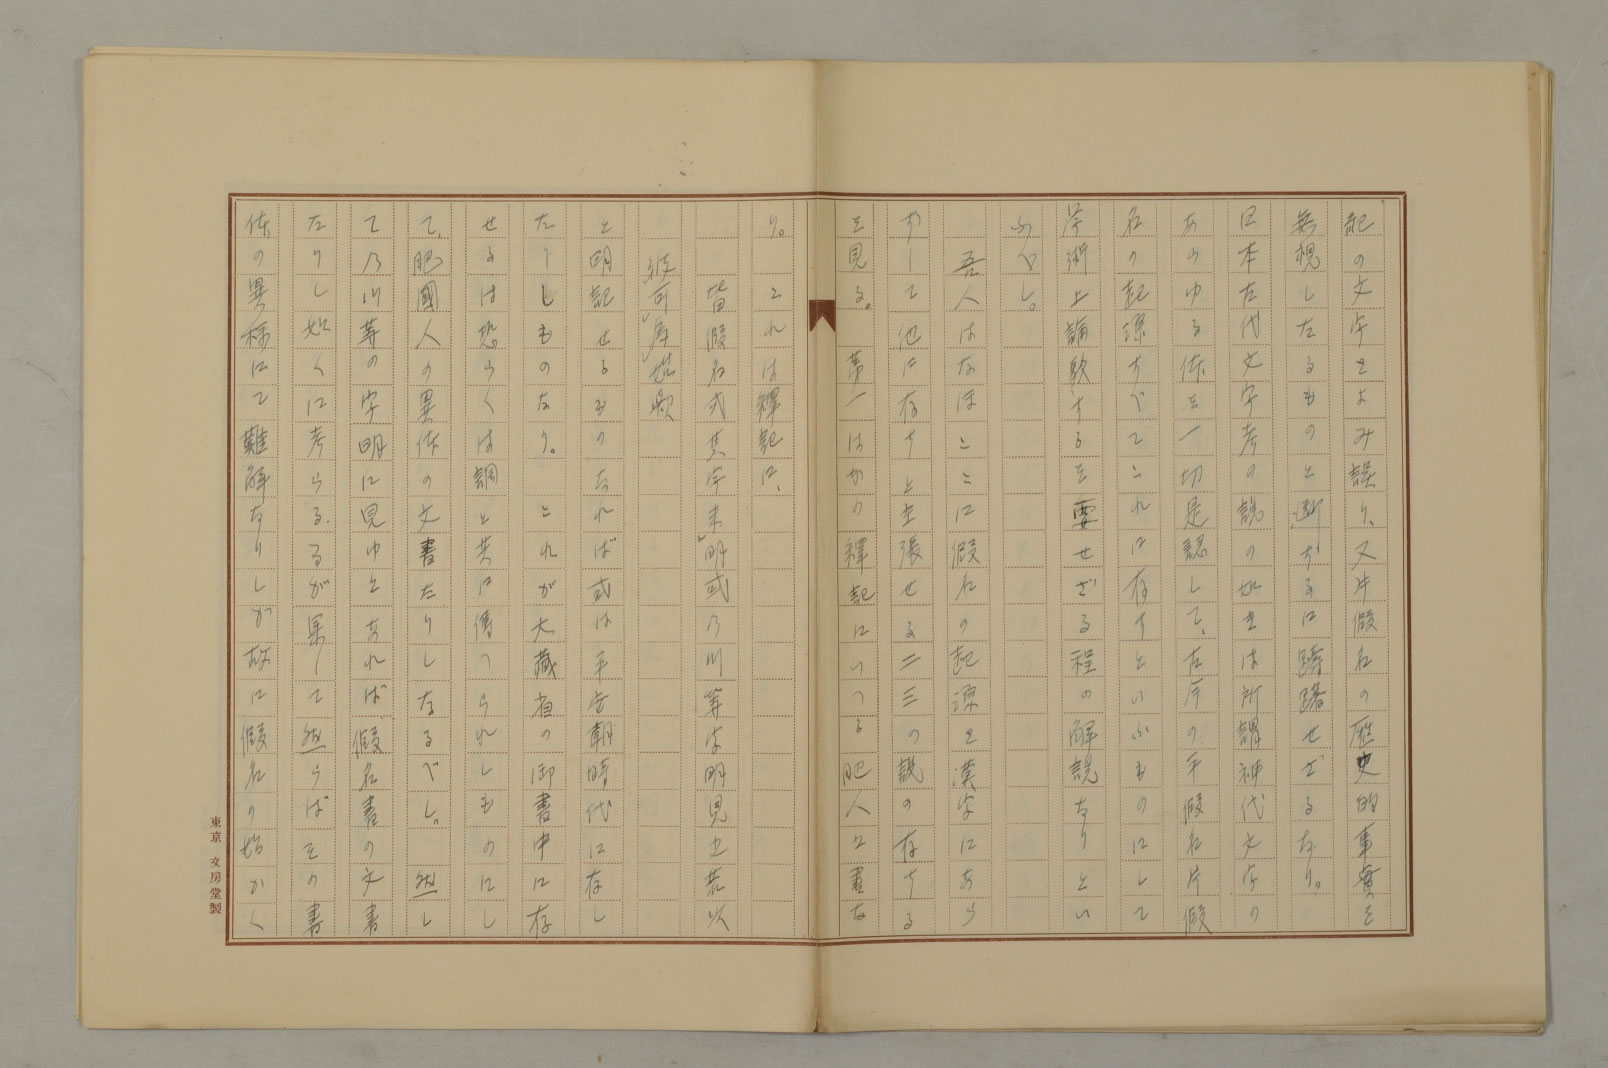 記の文字をよみ誤り、又片假名の歴史的事實を
無視したるものと断ずるに躊躇せざるなり。
日本古代文字考の説の如きは所謂神代文字の
あらゆる体を一切是認して、古字の平假名片假
名の起源すべてこれに存すといふものにして
学術上論駁するを要せざる程の解説なりとい
ふべし。
吾人はなほここに假名の起源を漢字にあら
ずして他に存すと主張せる二三の説の存する
を見る。 第一はかの釋記にいへる肥人の書な
り。これは釋記に、
皆假名式其字未明或乃川等字明見之若以
彼可爲始歟
と明記せるものなれば或は平安朝時代に存し
たりしものなり。 これが大藏省の御書中に存
せるは恐らくは調と共に傳へられしものにし
て、肥國人の異体の文書たりしなるべし。 然し
て乃川等の字明に見ゆとあれば假名書の文書
たりし如くに考らる。るが果して然らばその書
体の異様にて難解なりしが故に假名の始かく
東京 文房堂製